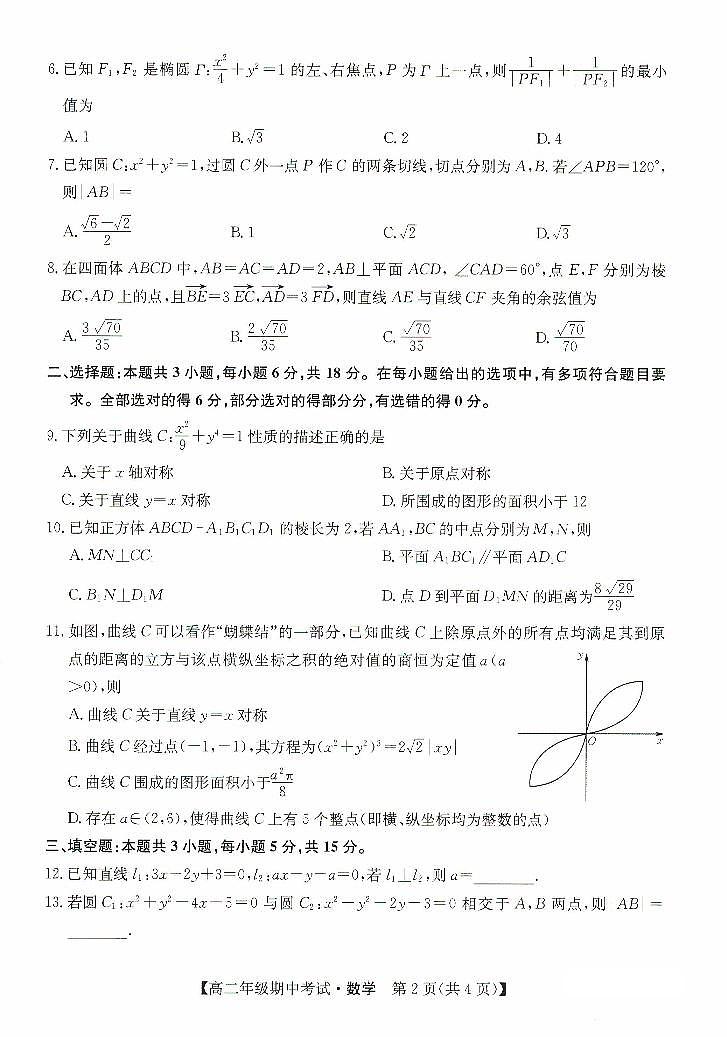 6. 已知 F₁,F₂ 是椭圆 Γ:x²/4+y²=1 的左、右焦点,P 为 Γ 上一点,则 1/|PF₁|+1/|PF₂| 的最小
值为
A. 1 B. √3 C. 2 D. 4
7. 已知圆 C:x²+y²=1,过圆 C 外一点 P 作 C 的两条切线,切点分别为 A,B. 若∠APB=120°,
则|AB|=
A. (√6-√2)/2 B. 1 C. √2 D. √3
8. 在四面体 ABCD 中,AB=AC=AD=2,AB⊥平面 ACD, ∠CAD=60°,点 E,F 分别为棱
BC,AD 上的点,且BE→=3EC→,AD→=3FD→,则直线 AE 与直线 CF 夹角的余弦值为
A. 3√70/35 B. 2√70/35 C. √70/35 D. √70/70
二、选择题:本题共 3 小题,每小题 6 分,共 18 分。在每小题给出的选项中,有多项符合题目要
求。全部选对的得 6 分,部分选对的得部分分,有选错的得 0 分。
9. 下列关于曲线 C:x²/9+y⁴=1 性质的描述正确的是
A. 关于 x 轴对称 B. 关于原点对称
C. 关于直线 y=x 对称 D. 所围成的图形的面积小于 12
10. 已知正方体 ABCD-A₁B₁C₁D₁ 的棱长为 2,若 AA₁,BC 的中点分别为 M,N,则
A. MN⊥CC₁ B. 平面 A₁BC₁∥平面 AD₁C
C. B₁N⊥D₁M D. 点 D 到平面 D₁MN 的距离为8√29/29
11. 如图,曲线 C 可以看作“蝴蝶结”的一部分,已知曲线 C 上除原点外的所有点均满足其到原
点的距离的立方与该点横纵坐标之积的绝对值的商恒为定值 a(a
>0),则
A. 曲线 C 关于直线 y=x 对称
B. 曲线 C 经过点(-1,-1),其方程为(x²+y²)³=2√2|xy|
C. 曲线 C 围成的图形面积小于a²π/8
D. 存在 a∈(2,6),使得曲线 C 上有 5 个整点(即横、纵坐标均为整数的点)
y
O
x
三、填空题:本题共 3 小题,每小题 5 分,共 15 分。
12. 已知直线 l₁:3x-2y+3=0,l₂:ax-y-a=0,若 l₁⊥l₂,则 a=________.
13. 若圆 C₁:x²+y²-4x-5=0 与圆 C₂:x²-y²-2y-3=0 相交于 A,B 两点,则 |AB|=
________.
【高二年级期中考试·数学 第 2 页(共 4 页)】